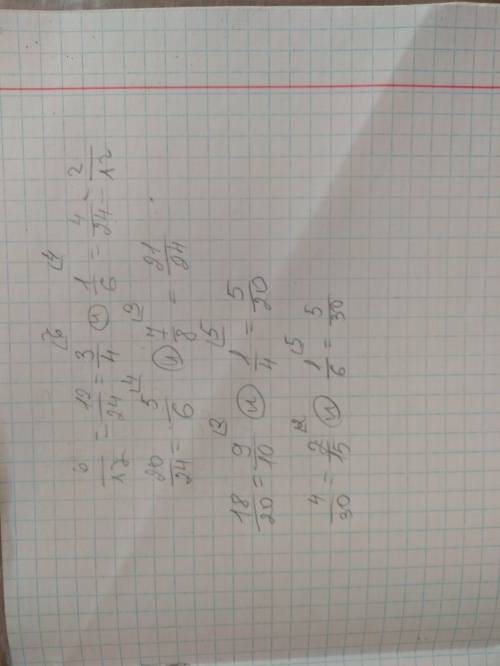 6/12 = 12/24 = 3/4 и 1/6 = 4/24 = 2/12
20/24 = 5/6 и 7/8 = 21/24
18/20 = 9/10 и 1/4 = 5/20
4/30 = 2/15 и 1/6 = 5/30